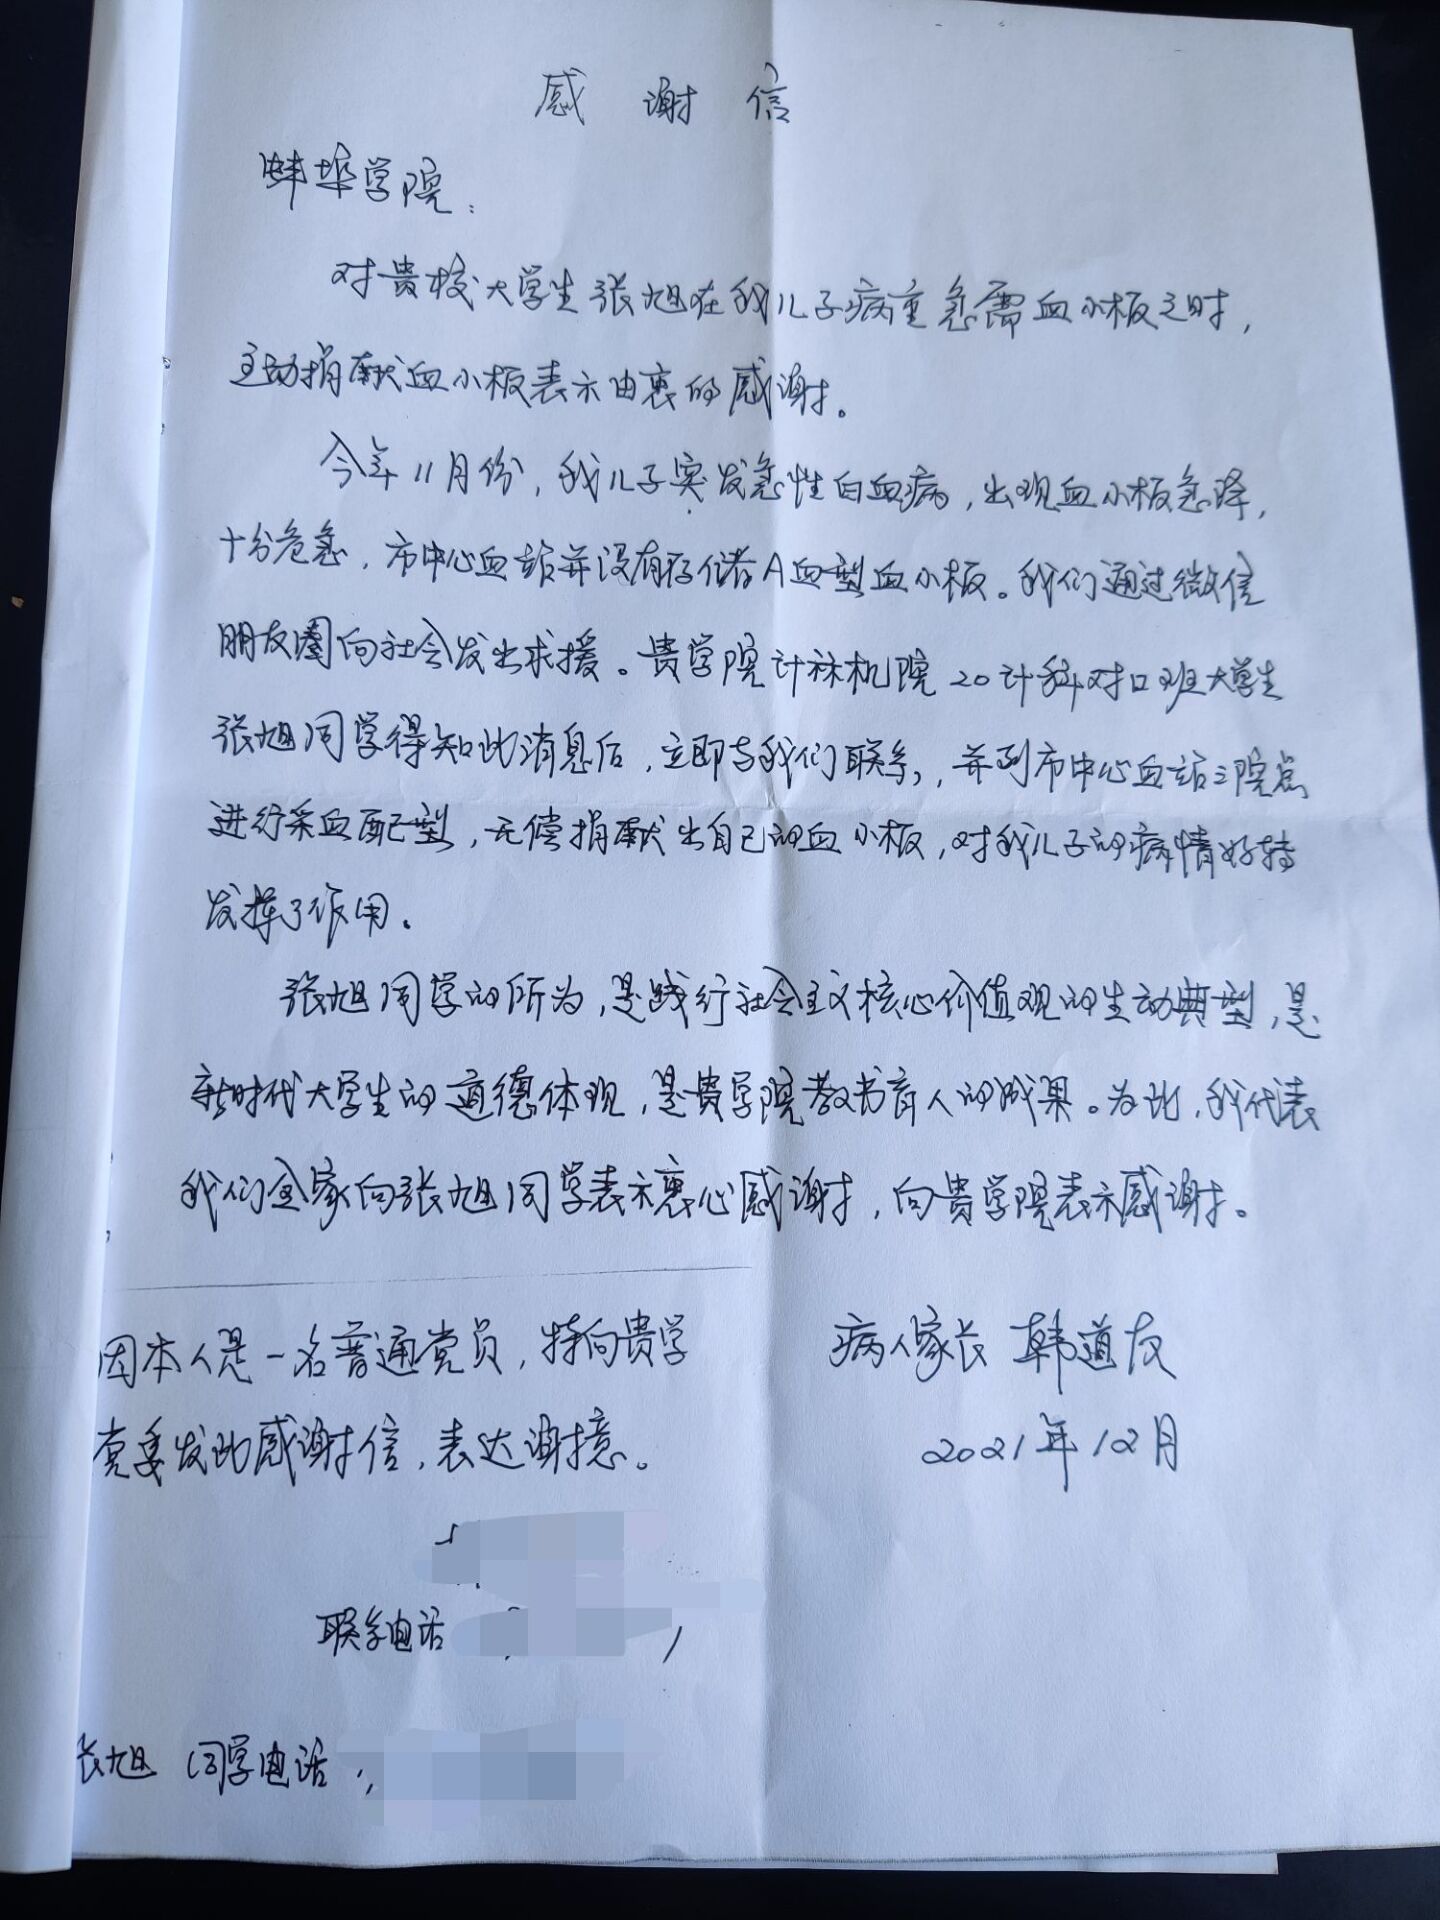 感谢信
蚌埠学院：
对贵校大学生张旭在我儿子病重急需血小板之时，
主动捐献血小板表示由衷的感谢。
今年11月份，我儿子突发急性白血病，出现血小板急降，
十分危急，市中心血站并没有存储A血型血小板。我们通过微信
朋友圈向社会发出求援。贵学院计祘机院20计科对口班大学生
张旭同学得知此消息后，立即与我们联系，并到市中心血站三院点
进行采血配型，无偿捐献出自己的血小板，对我儿子的病情好转
发挥了作用。
张旭同学的所为，是践行社会主义核心价值观的生动典型，是
新时代大学生的道德体现，是贵学院教书育人的成果。为此，我代表
我们全家向张旭同学表示衷心感谢，向贵学院表示感谢。
病人家长 韩道友
2021年12月
因本人是一名普通党员，特向贵学
党委发此感谢信，表达谢意。
联系电话
张旭 同学电话